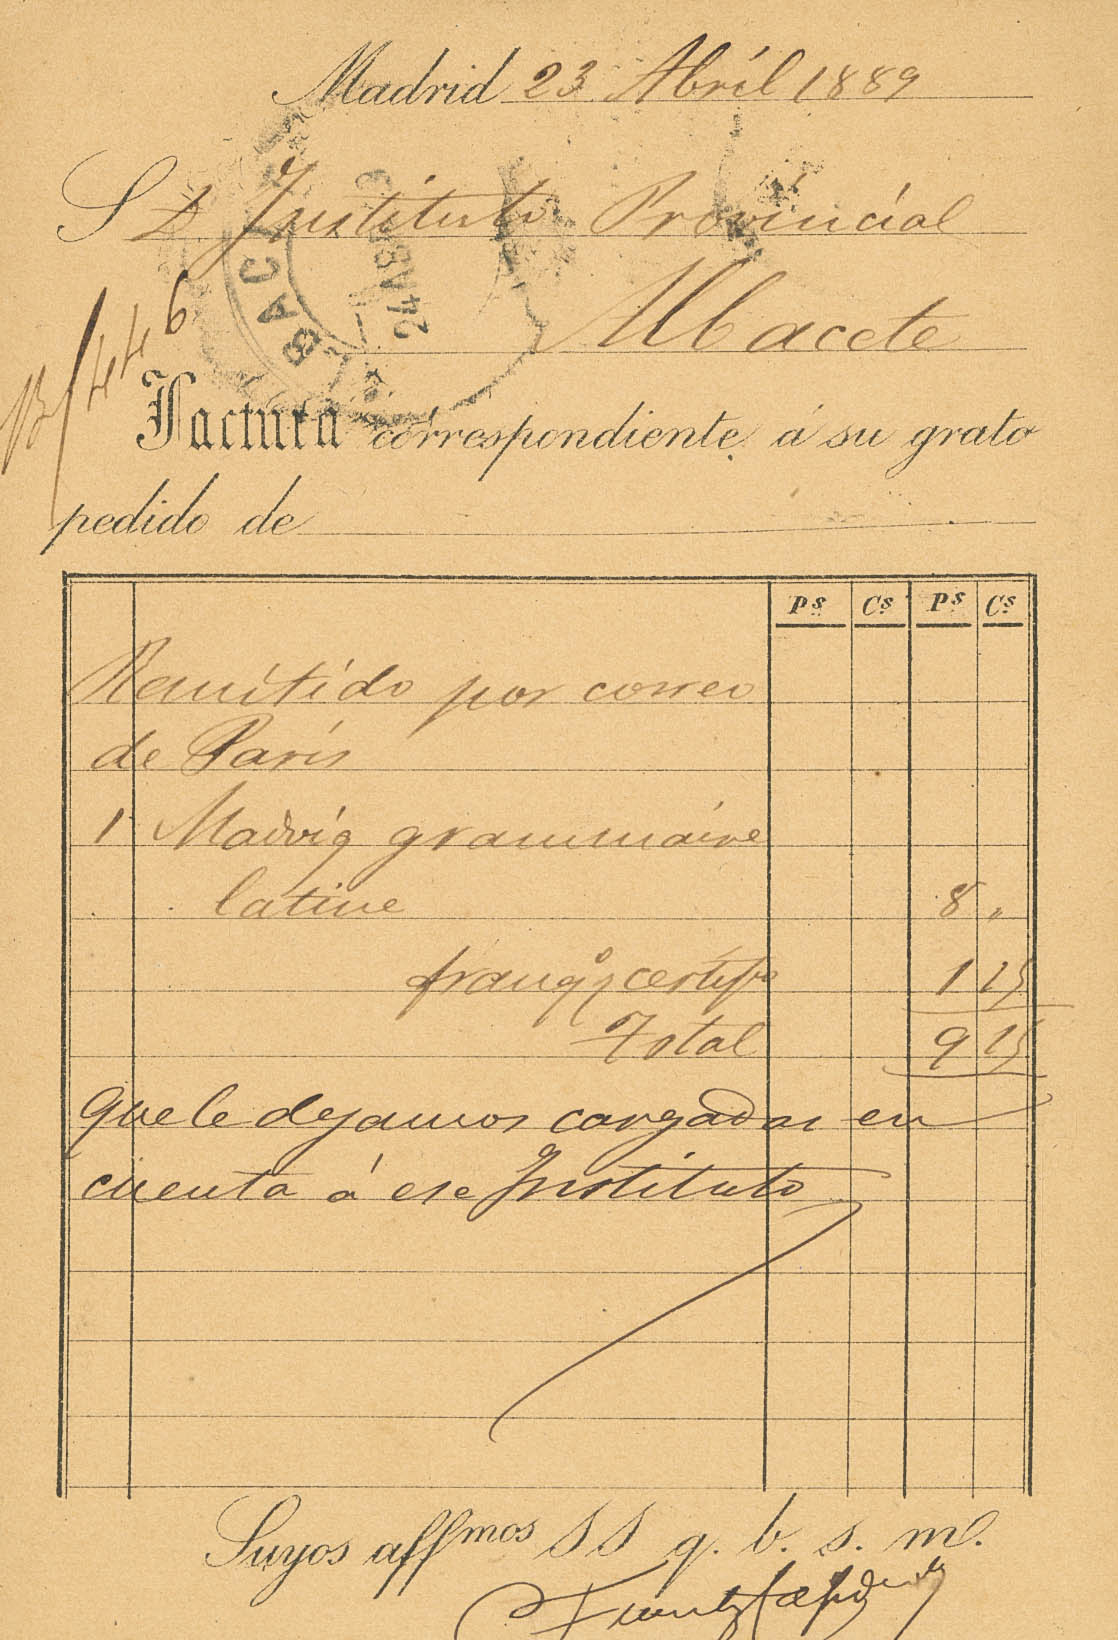 Madrid 23 Abril 1889
S D. Instituto Provincial
Albacete
24 ABR
BAC
B/4446
Factura correspondiente á su grato
pedido de
Ps Cs Ps Cs
Remitido por correo
de Paris
1 Madvig grammaire
latine 8 "
franqo y certifo 1 15
Total 9 15
Que le dejamos cargadas en
cuenta á ese Instituto
Suyos affmos S S q. b. s. m.